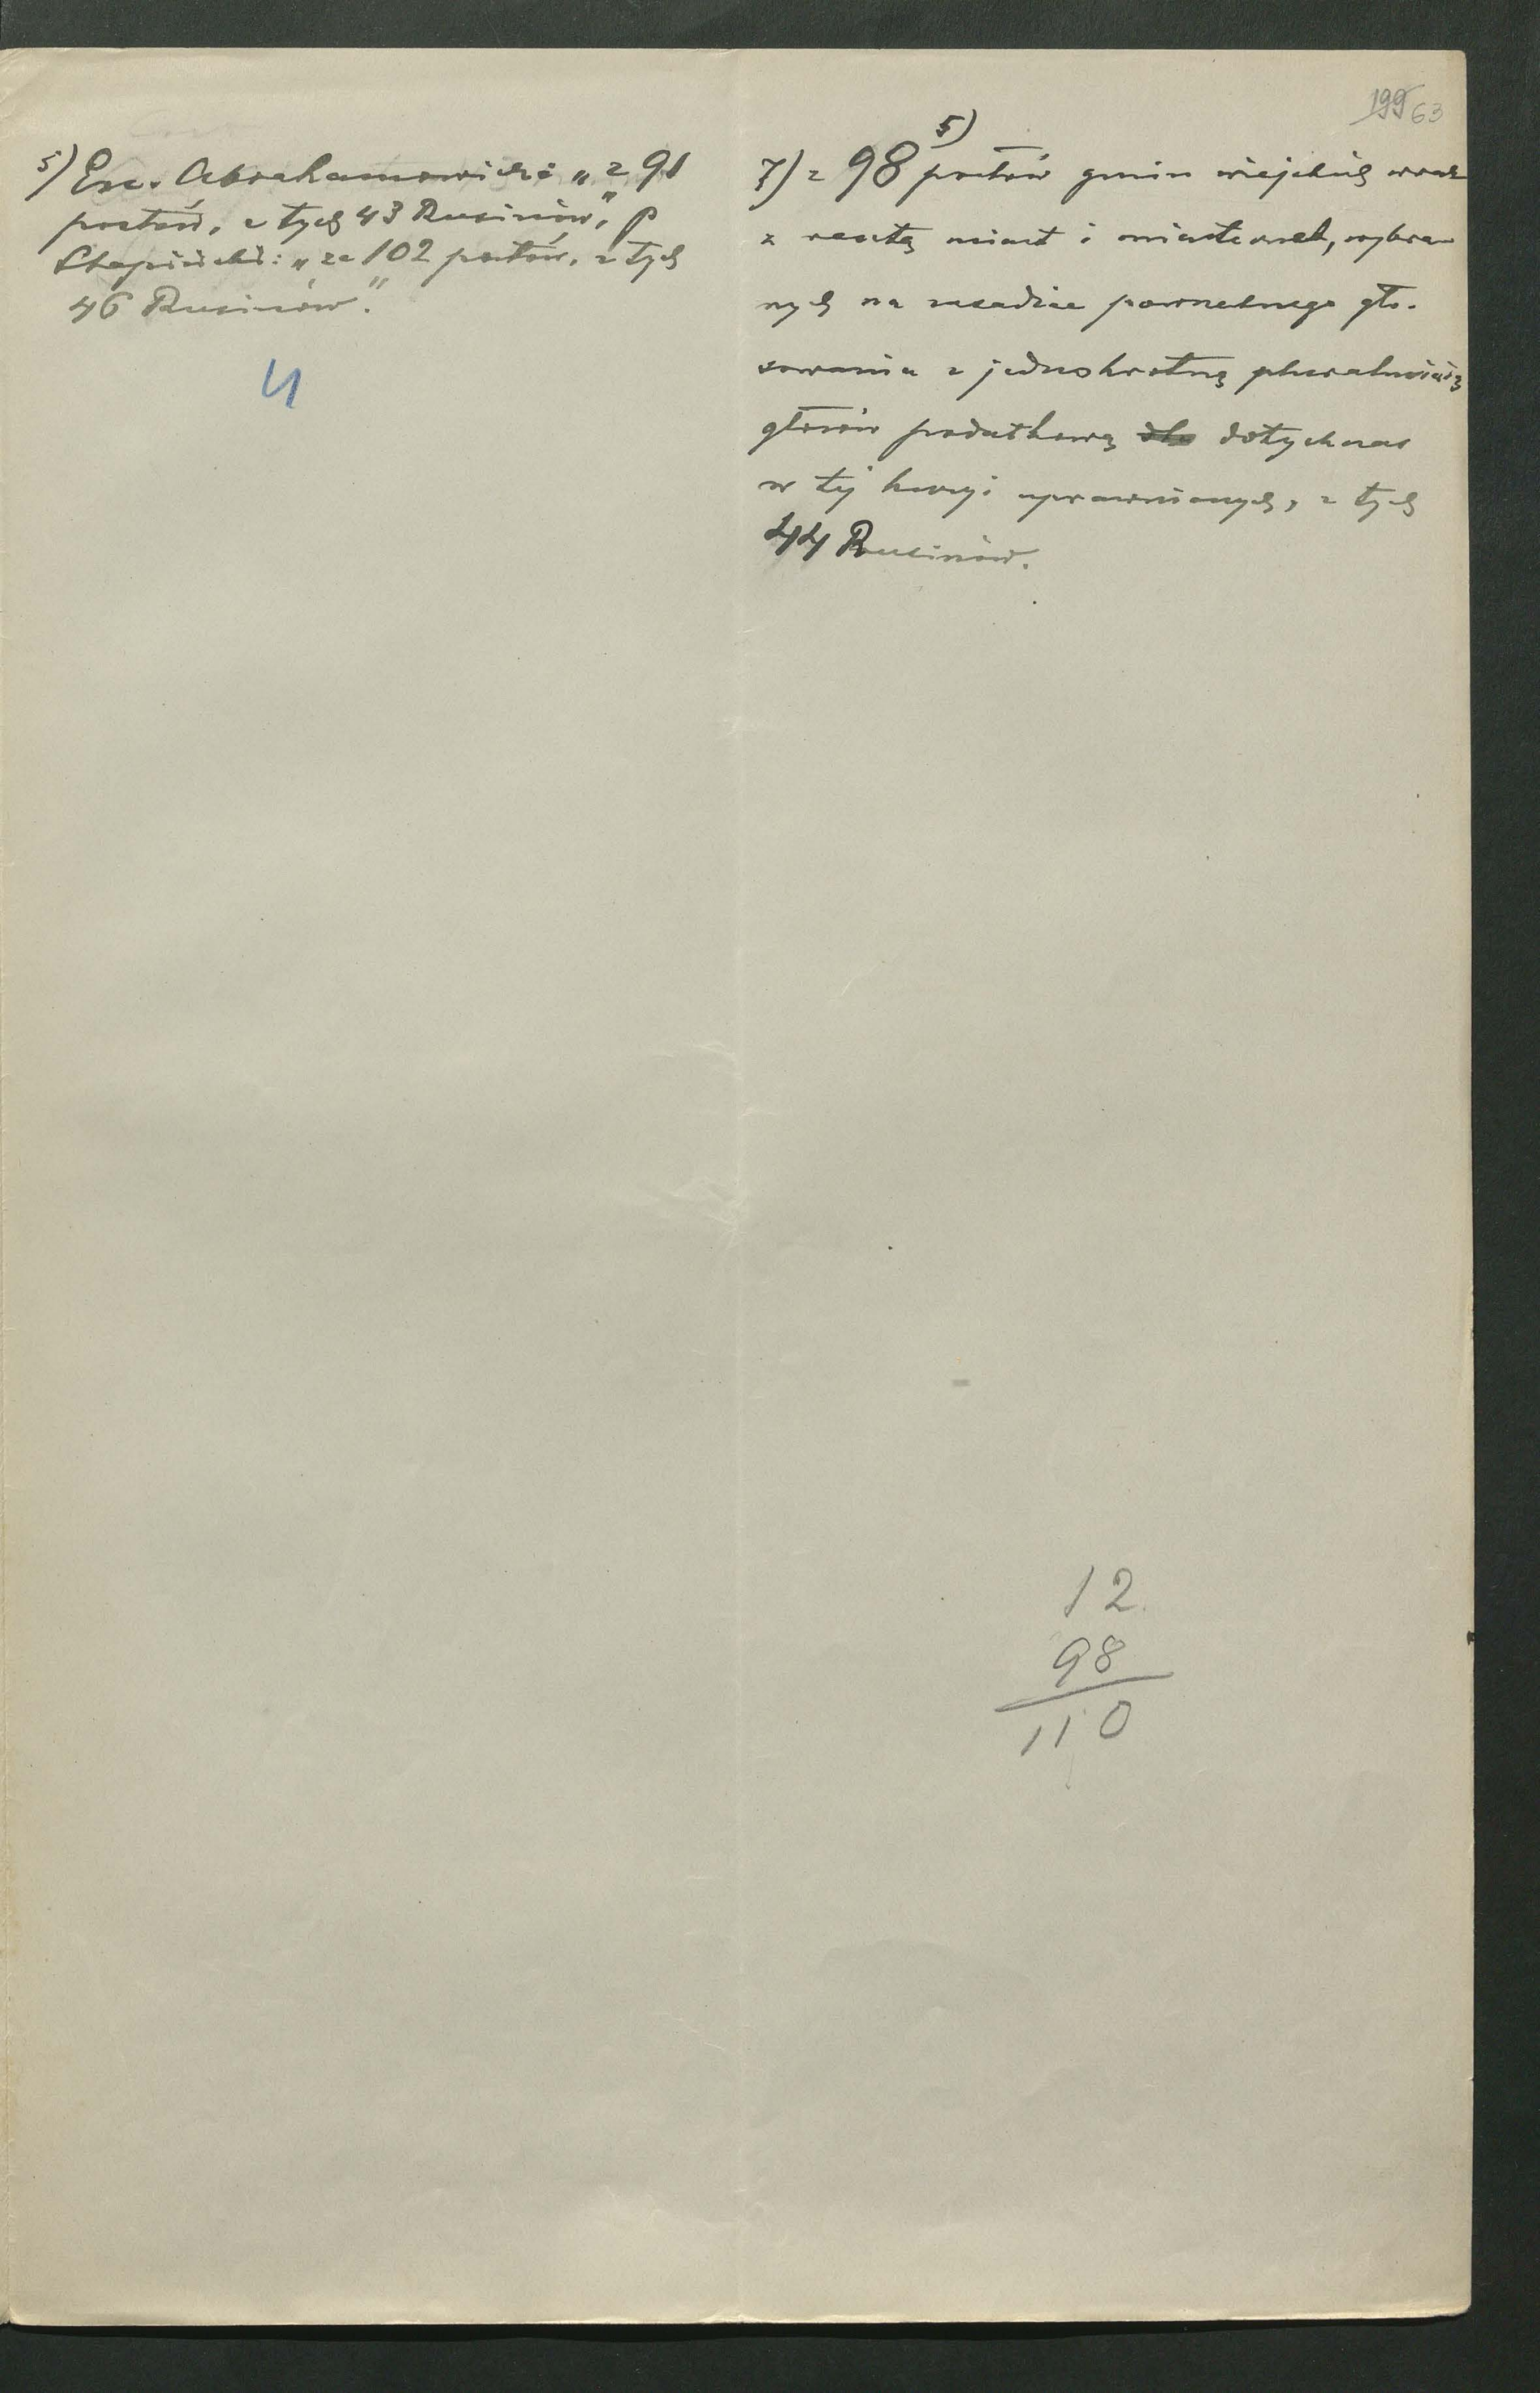 199 63
5) Exc. Abrahamowicz: „z 91
posłów, z tych 43 Rusinów", p
Stapiński: „ze 102 posłów, z tych
46 Rusinów".
4
5)
7) z 98 posłów gmin wiejskich wraz
z resztą miast i miasteczek, wybra-
nych na zasadzie powszechnego gło-
sowania z jednokrotną pluralnością
głosów podatkową dla dotychczas
w tej kuryi uprawnionych, z tych
44 Rusinów.
12
98
110